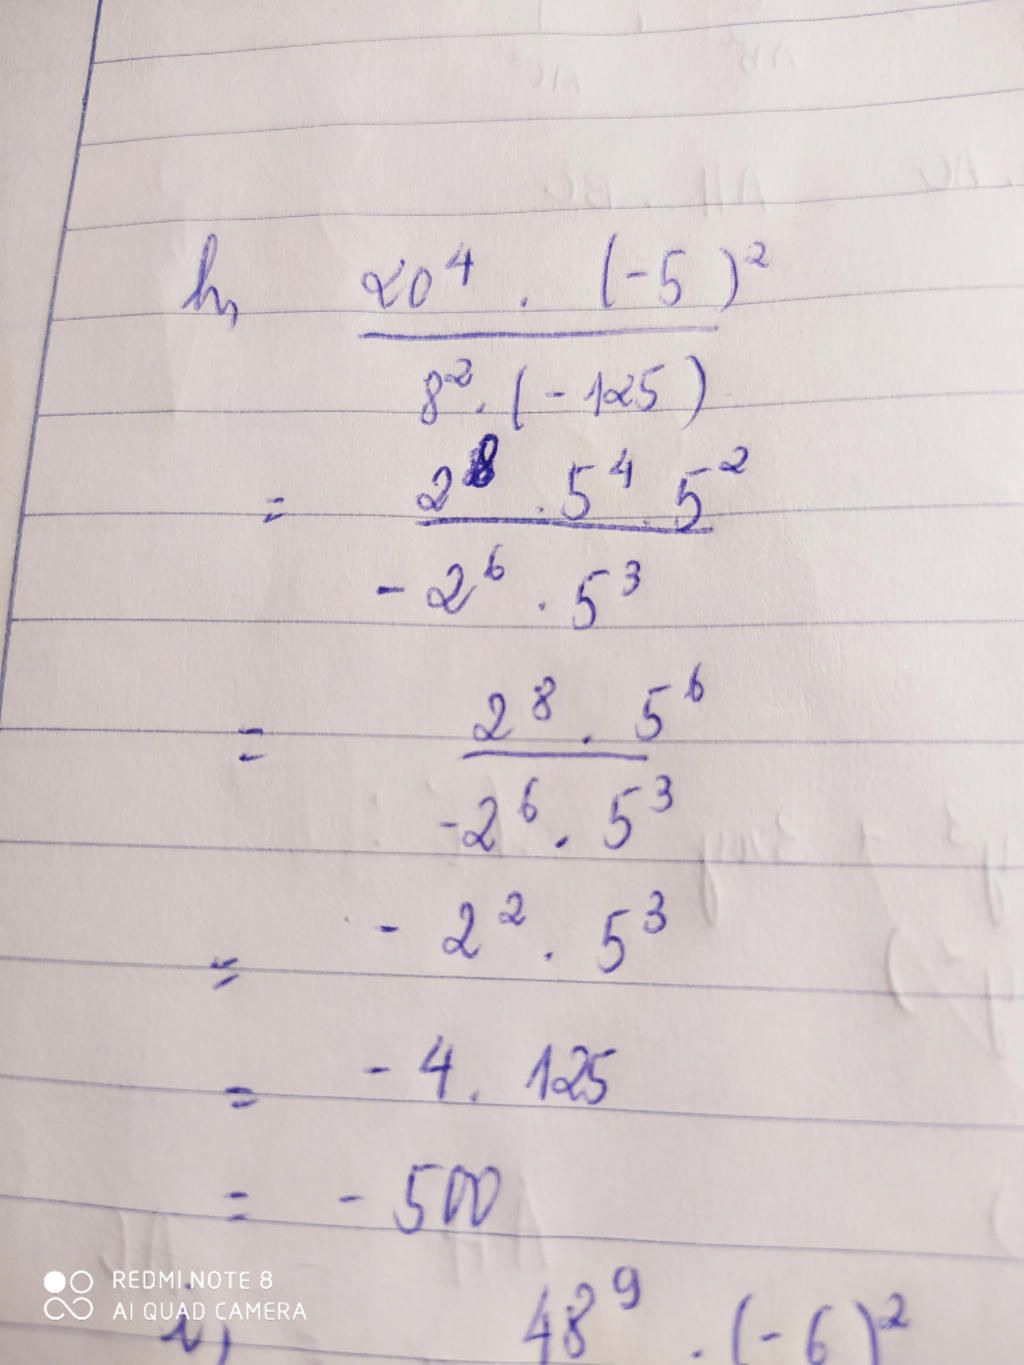 h, 20⁴ . (-5)²
8² . (-125)
= 2⁸ . 5⁴ . 5²
- 2⁶ . 5³
= 2⁸ . 5⁶
-2⁶ . 5³
= - 2² . 5³
= - 4 . 125
= - 500
i, 48⁹ . (-6)²
REDMI NOTE 8
AI QUAD CAMERA